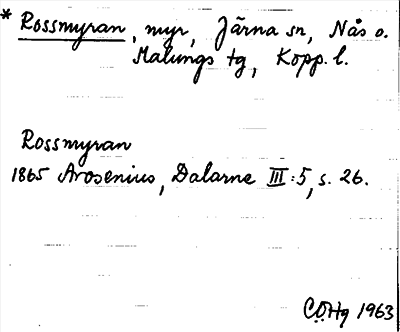 * Rossmyran, myr, Järna sn, Nås o.
Malungs tg, Kopp. l.
Rossmyran
1865 Arosenius, Dalarne III:5, s. 26.
CÖHg 1963